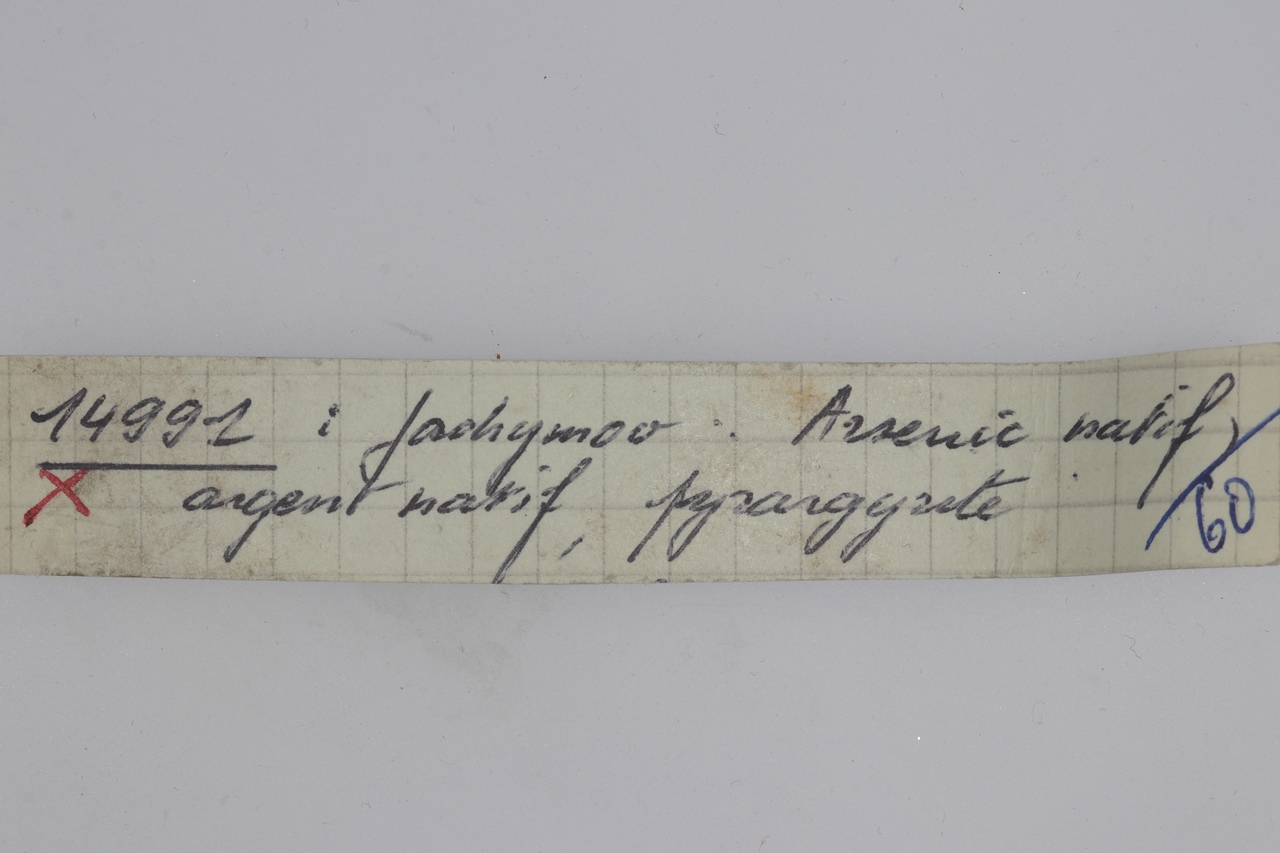 14991 : Jachymov : Arsenic natif,
X argent natif, pyrargyrite
/60